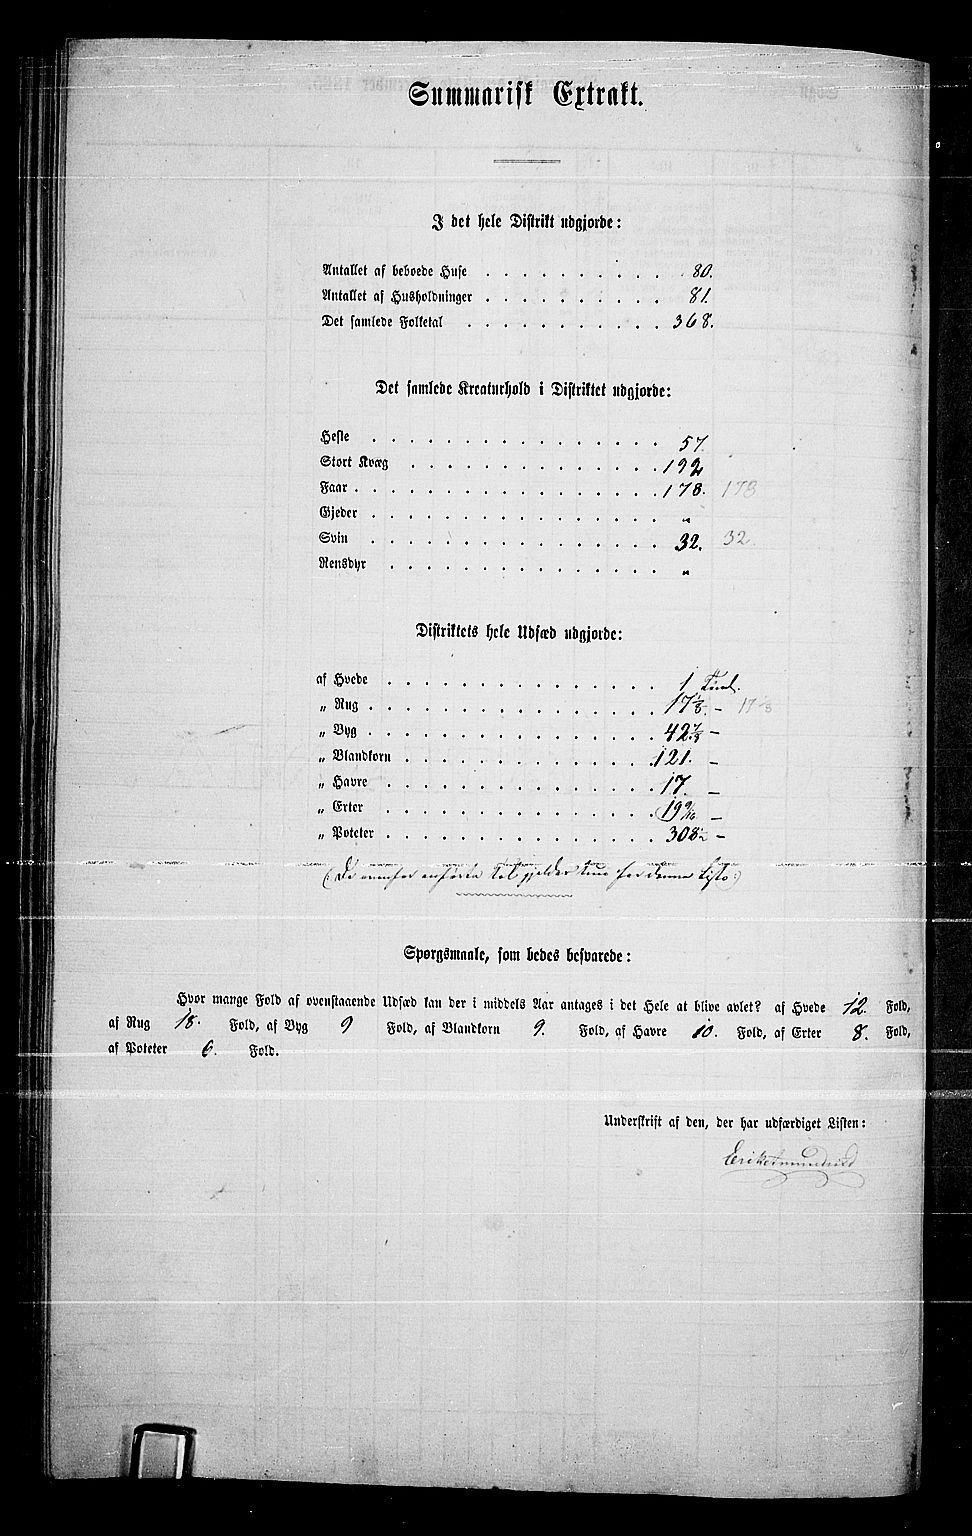 Summarisk Extrakt.
I det hele Distrikt udgjorde:
Antallet af beboede Huse . . . . . . . . . . 80.
Antallet af Husholdninger . . . . . . . . . . 81.
Det samlede Folketal . . . . . . . . . . . 368.
Det samlede Kreaturhold i Distriktet udgjorde:
Heste . . . . . . . . . . . . . . . . 57.
Stort Kvæg . . . . . . . . . . . . . . 192
Faar . . . . . . . . . . . . . . . . . 178. 178
Gjeder . . . . . . . . . . . . . . . . "
Svin . . . . . . . . . . . . . . . . 32. 32
Rensdyr . . . . . . . . . . . . . . . "
Distriktets hele Udsæd udgjorde:
af Hvede . . . . . . . . . . . . . . . 1 Tønd.
„ Rug . . . . . . . . . . . . . . . . 17 1/8. – 17 1/8
„ Byg . . . . . . . . . . . . . . . . 42 7/8 –
„ Blandkorn . . . . . . . . . . . . . . 121. –
„ Havre . . . . . . . . . . . . . . . 17. –
„ Erter . . . . . . . . . . . . . . . 19 9/16 –
„ Poteter . . . . . . . . . . . . . . . 308 1/2 –
(: De ovenfor anførte Tal gjelder kun for denne Liste :)
Spørgsmaale, som bedes besvarede:
Hvor mange Fold af ovenstaaende Udsæd kan der i middels Aar antages i det Hele at blive avlet? af Hvede 12. Fold,
af Rug 18. Fold, af Byg 9 Fold, af Blandkorn 9. Fold, af Havre 10. Fold, af Erter 8. Fold,
af Poteter 6. Fold.
Underskrift af den, der har udfærdiget Listen: